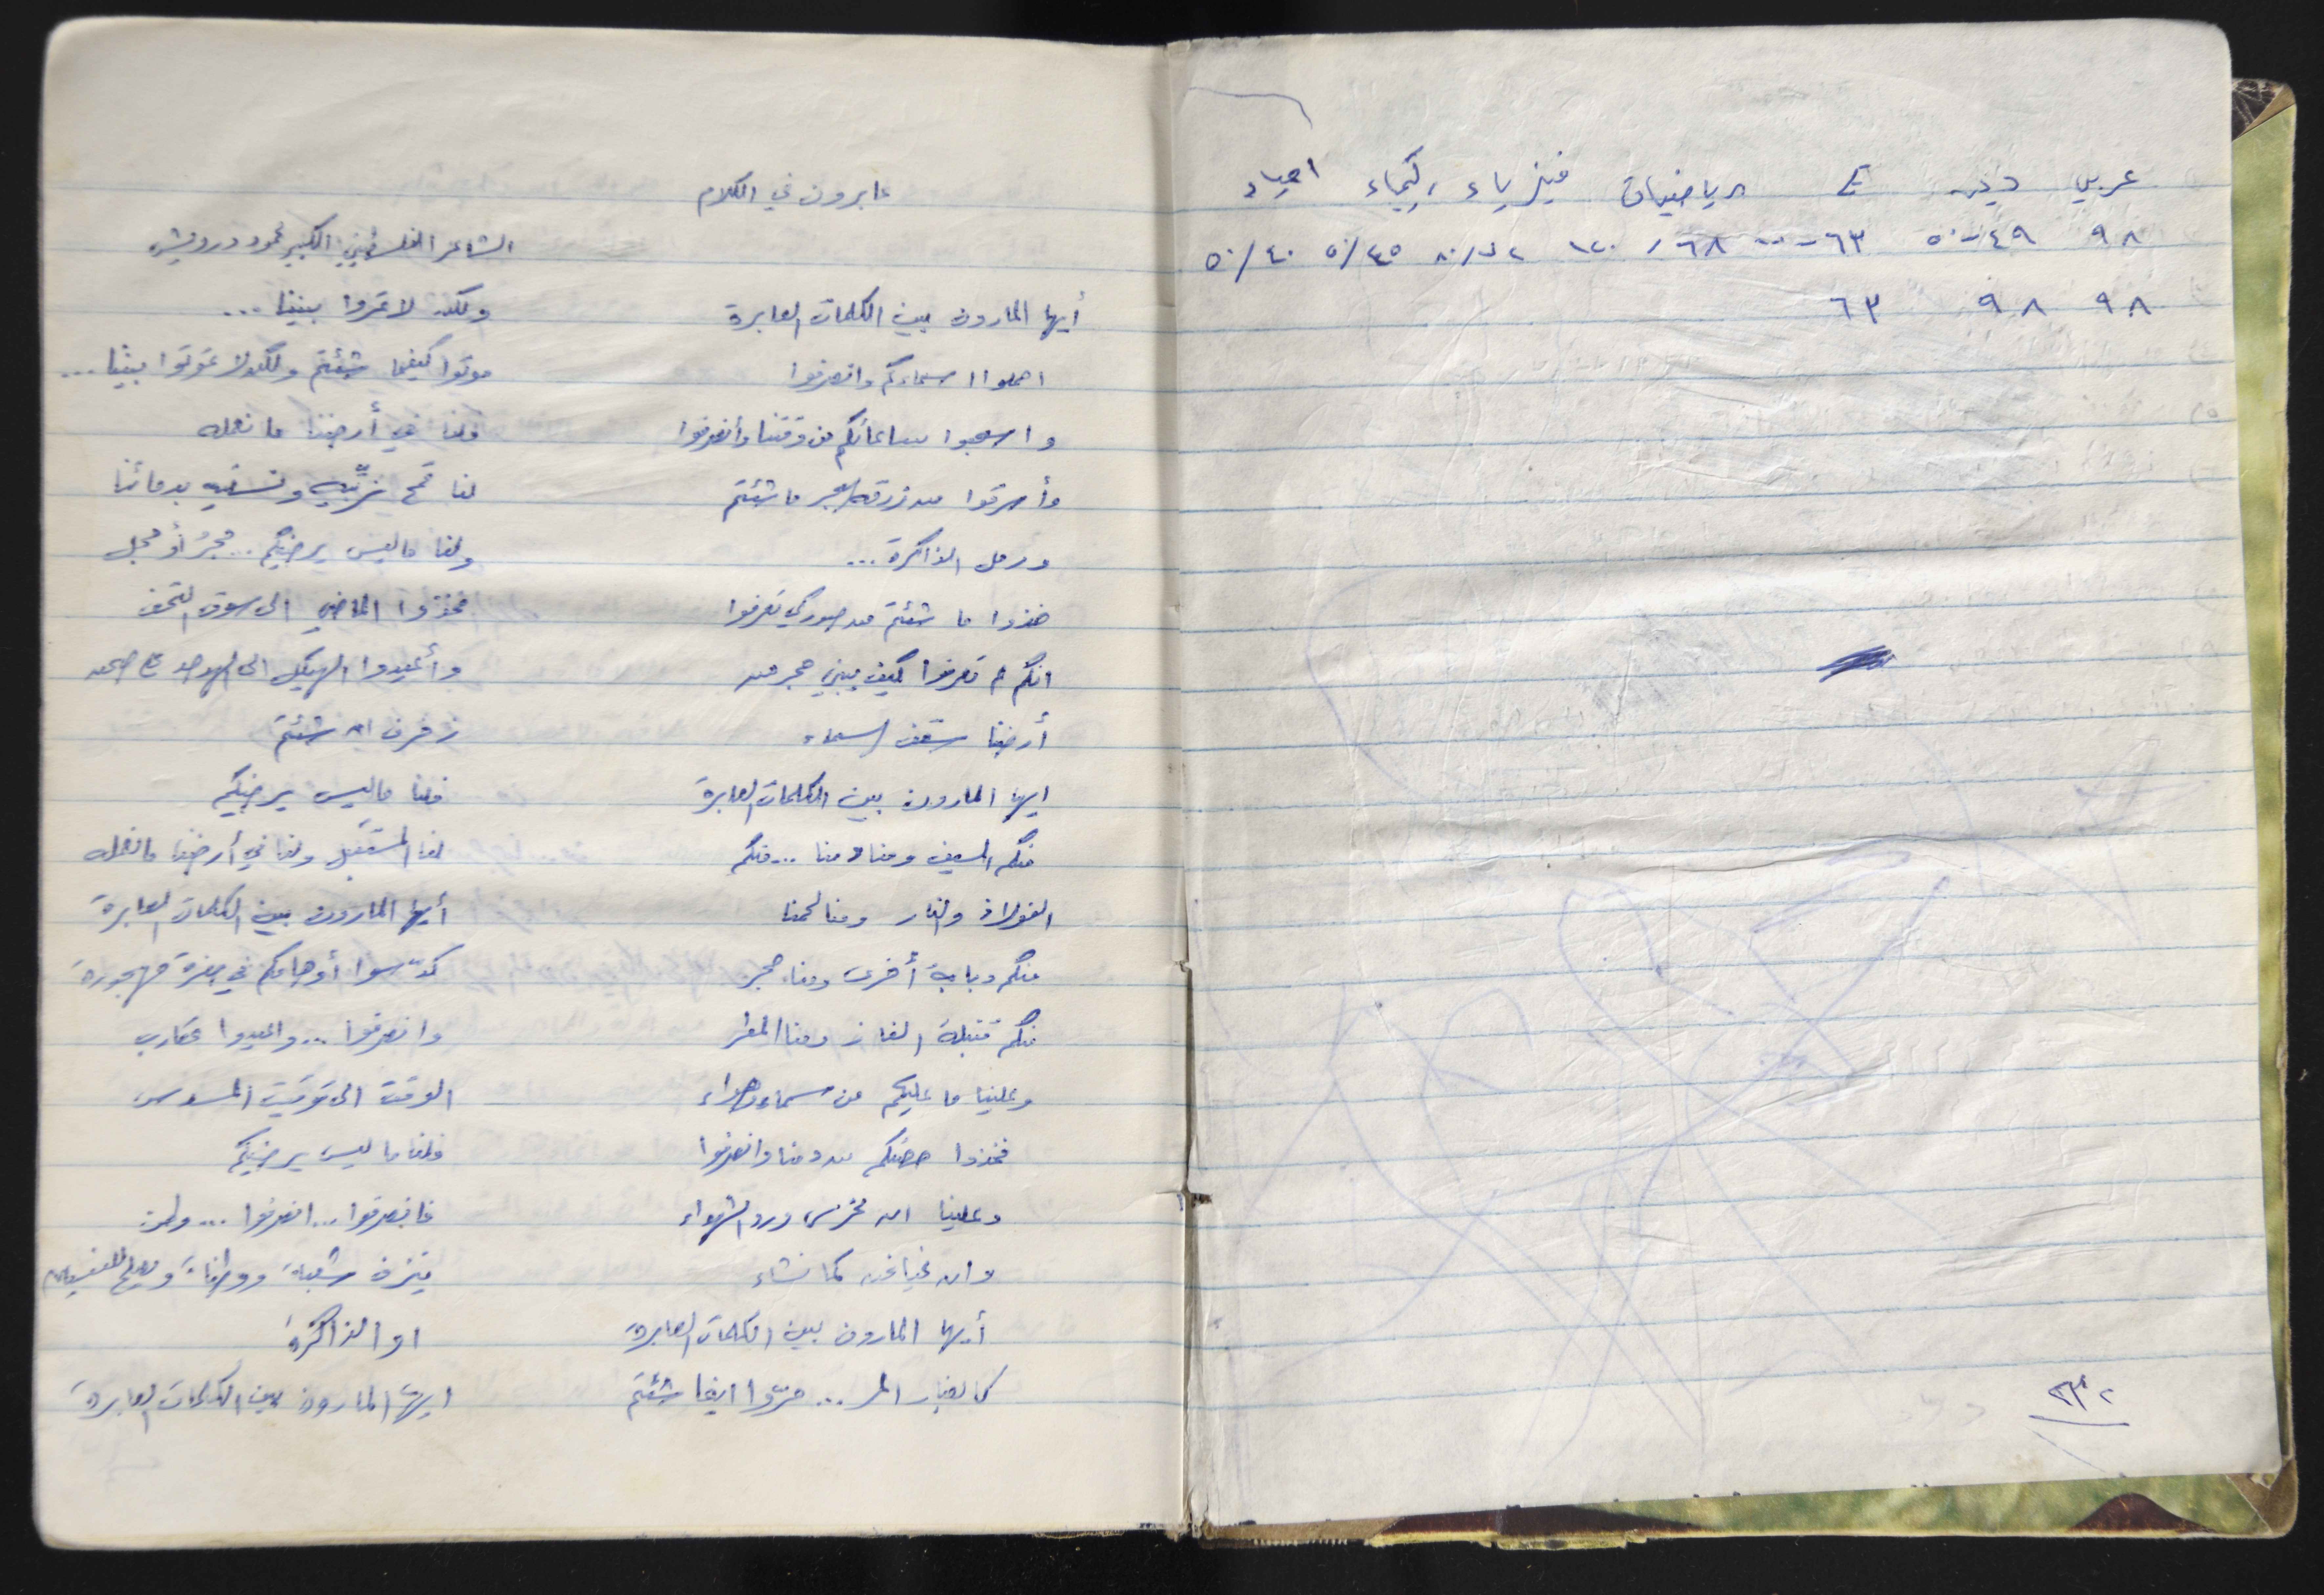 عربي دين E الرياضيات فيزياء كيمياء احياء
٩٨ ٤٩-٥٠ ٦٣-- ٦٨/١٢٠ ٨٠/ ٤٥/٥٠ ٤٠/٥٠
٩٨ ٩٨ ٦٣
عابرون في الكلام
الشاعر الفلسطيني الكبير محمود درويش
أيها المارون بين الكلمات العابرة
احملوا اسماءكم وانصرفوا
واسحبوا ساعاتكم من وقتنا وأنصرفوا
وأسرقوا من زرقة البحر ما شئتم
ورمل الذاكرة...
خذوا ما شئتم من صور كي تعرفوا
انكم لم تعرفوا كيف يبني حجر من
أرضنا سقف السماء
ايها المارون بين الكلمات العابرة
منكم السيف ومنا دمنا... منكم
الفولاذ والنار ومنا لحمنا
منكم دبابة أخرى ومنا حجر
منكم قنبلة الغاز ومنا المطر
وعلينا ما عليكم من سماء وهواء
فخذوا حصتكم من دمنا وانصرفوا
وعلينا ان نحرس ورد الشهداء
وان نحيا نحن كما نشاء
أيها المارون بين الكلمات العابرة
كالغبار المر... مرّوا اينما شئتم
ولكن لا تمروا بيننا...
موتوا كيفما شئتم ولكن لا تموتوا بيننا...
فلنا في أرضنا ما نعمل
لنا قمح نربّيه ونسقيه بدمائنا
ولنا ماليس يرضيكم... حجرُ أو حجل
فخذوا الماضي الى سوق التحف
وأعيدوا الهيكل الى الهدهد على صحن
زفرف ان شئتم
فلنا ماليس يرضيكم
لنا المستقبل ولنا في أرضنا ما نعمل
أيها المارون بين الكلمات العابرة
كدّسوا أوهامكم في حفرة مهجورة
وانصرفوا... واعيدوا عقارب
الوقت الى توقيت المسدس
فلنا ما ليس يرضيكم
فانصرفوا... انصرفوا... ولنا
ينزف شعباً ووطناً يصلح للنسيان
او الذاكرة
ايها المارون بين الكلمات العابرة